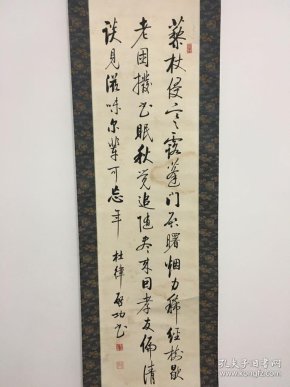 藜杖侵寒露蓬门启曙烟力稀经树歇
老困拨书眠秋觉追随尽来因孝友偏清
谈见滋味尔辈可忘年
杜律 启功书
孔夫子旧书网